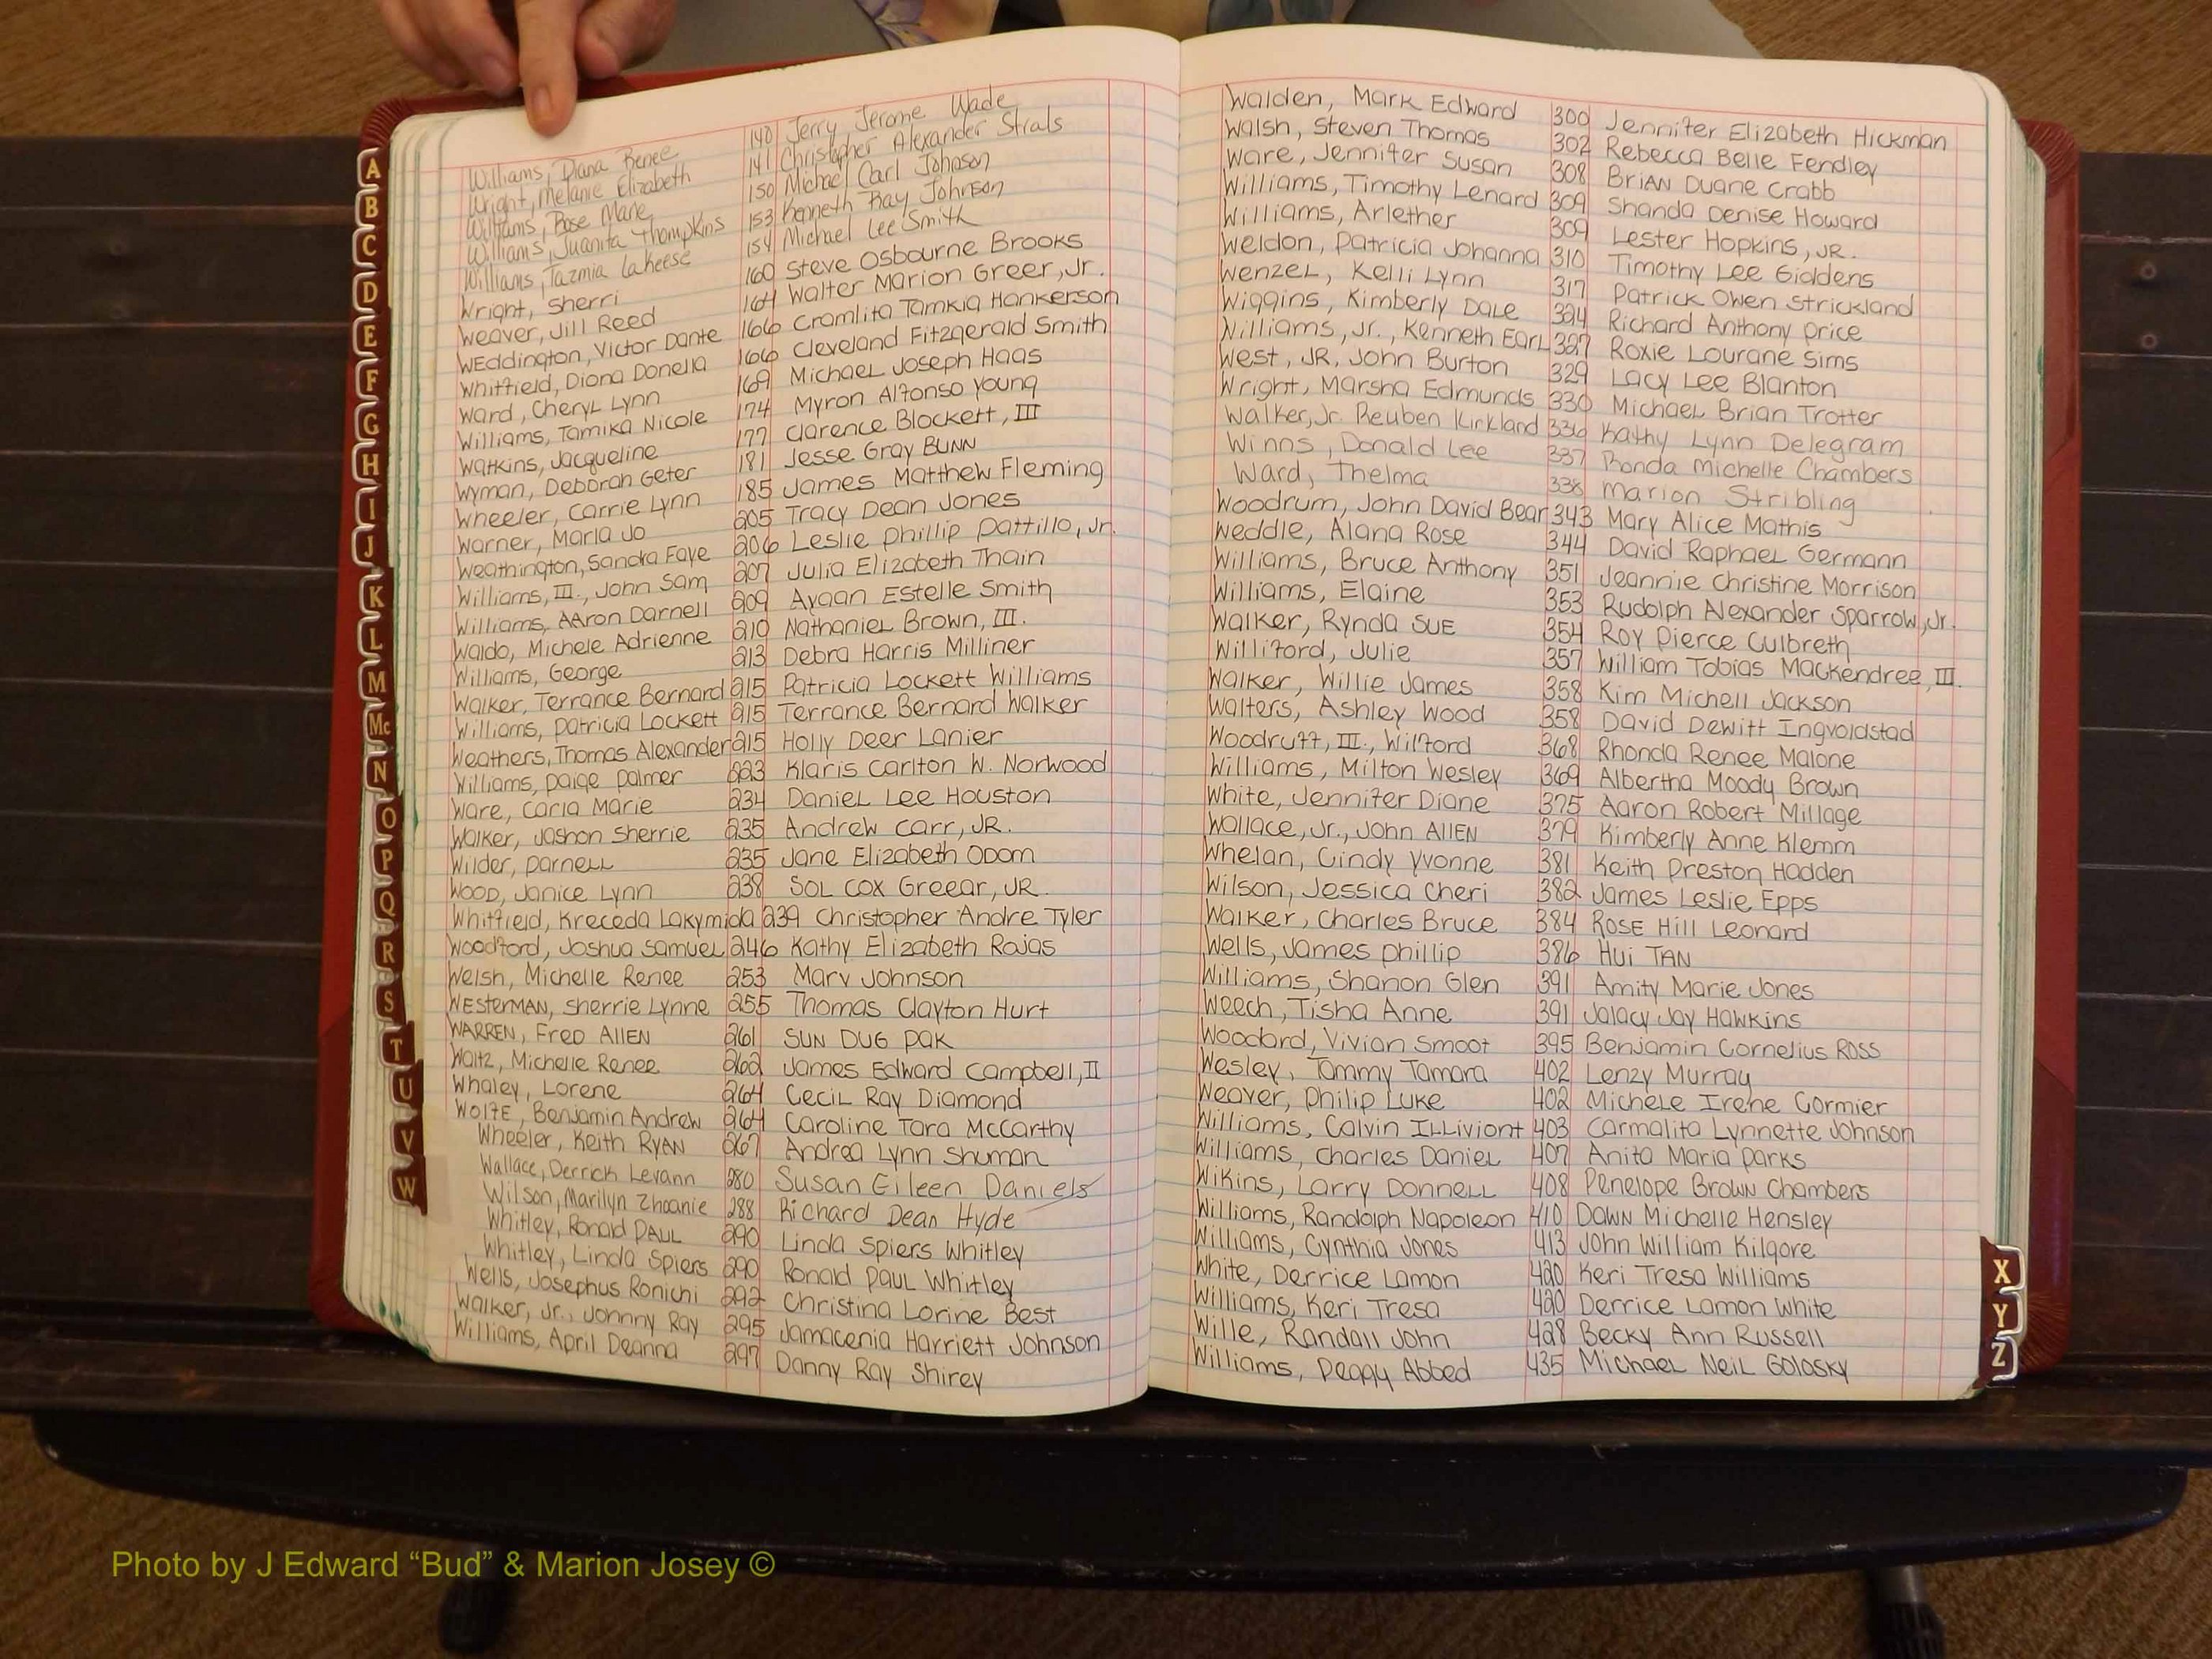 A
B
C
D
E
F
G
H
I
J
K
L
M
Mc
N
O
P
Q
R
S
T
U
V
W
Williams, Diana Renee 140 Jerry Jerome Wade
Wright, Melanie Elizabeth 141 Christopher Alexander Strals
Williams, Rose Marie 150 Michael Carl Johnson
Williams, Juanita Thompkins 153 Kenneth Ray Johnson
Williams, Tazmia Lakeese 154 Michael Lee Smith
Wright, Sherri 160 Steve Osbourne Brooks
Weaver, Jill Reed 164 Walter Marion Greer, Jr.
WEddington, Victor Dante 166 Cromlita Tamkia Hankerson
Whitfield, Diona Donella 166 Cleveland Fitzgerald Smith
Ward, Cheryl Lynn 169 Michael Joseph Haas
Williams, Tamika Nicole 174 Myron Alfonso Young
Watkins, Jacqueline 177 Clarence Blockett, III
Wyman, Deborah Geter 181 Jesse Gray Bunn
Wheeler, Carrie Lynn 185 James Matthew Fleming
Warner, Marla Jo 205 Tracy Dean Jones
Weathington, Sandra Faye 206 Leslie Phillip Pattillo, Jr.
Williams, III., John Sam 207 Julia Elizabeth Thain
Williams, AAron Darnell 209 Ayaan Estelle Smith
Waldo, Michele Adrienne 210 Nathaniel Brown, III.
Williams, George 213 Debra Harris Milliner
Walker, Terrance Bernard 215 Patricia Lockett Williams
Williams, Patricia Lockett 215 Terrance Bernard Walker
Weathers, Thomas Alexander 215 Holly Deer Lanier
Williams, Paige Palmer 223 Klaris Carlton W. Norwood
Ware, Carla Marie 234 Daniel Lee Houston
Walker, Jashon Sherrie 235 Andrew Carr, JR.
Wilder, Parnell 235 Jane Elizabeth Odom
Wood, Janice Lynn 238 Sol Cox Greear, JR.
Whitfield, Kreceda Lakymida 239 Christopher Andre Tyler
Woodford, Joshua Samuel 246 Kathy Elizabeth Rojas
Welsh, Michelle Renee 253 Marv Johnson
WESTERMAN, Sherrie Lynne 255 Thomas Clayton Hurt
WARREN, Fred Allen 261 SUN DUG PAK
Waltz, Michelle Renee 262 James Edward Campbell, II
Whaley, Lorene 264 Cecil Ray Diamond
Wolfe, Benjamin Andrew 264 Caroline Tara McCarthy
Wheeler, Keith Ryan 267 Andrea Lynn Shuman
Wallace, Derrick Levann 280 Susan Eileen Daniels
Wilson, Marilyn Zhoanie 288 Richard Dean Hyde
Whitley, Ronald PAUL 290 Linda Spiers Whitley
Whitley, Linda Spiers 290 Ronald PAUL Whitley
Wells, Josephus Ronichi 292 Christina Lorine Best
Walker, Jr., Johnny Ray 295 Jamacenia Harriett Johnson
Williams, April Deanna 297 Danny Ray Shirey
Walden, Mark Edward 300 Jennifer Elizabeth Hickman
Walsh, Steven Thomas 302 Rebecca Belle Fendley
Ware, Jennifer Susan 308 Brian Duane Crabb
Williams, Timothy Lenard 309 Shanda Denise Howard
Williams, Arlether 309 Lester Hopkins, JR.
Weldon, Patricia Johanna 310 Timothy Lee Giddens
Wenzel, Kelli Lynn 317 Patrick Owen Strickland
Wiggins, Kimberly Dale 324 Richard Anthony Price
Williams, Jr., Kenneth Earl 327 Roxie Lourane Sims
West, JR, John Burton 329 Lacy Lee Blanton
Wright, Marsha Edmunds 330 Michael Brian Trotter
Walker, Jr. Reuben Kirkland 336 Kathy Lynn Delegram
Winns, Donald Lee 337 Ronda Michelle Chambers
Ward, Thelma 338 Marion Stribling
Woodrum, John David Bear 343 Mary Alice Mathis
Weddle, Alana Rose 344 David Raphael Germann
Williams, Bruce Anthony 351 Jeannie Christine Morrison
Williams, Elaine 353 Rudolph Alexander Sparrow, Jr.
Walker, Rynda SUE 354 Roy Pierce Culbreth
Williford, Julie 357 William Tobias Mackendree, III.
Walker, Willie James 358 Kim Michell Jackson
Walters, Ashley Wood 358 David Dewitt Ingvoldstad
Woodruff, III., Wilford 368 Rhonda Renee Malone
Williams, Milton Wesley 369 Albertha Moody Brown
White, Jennifer Diane 375 Aaron Robert Millage
Wallace, Jr., John Allen 379 Kimberly Anne Klemm
Whelan, Cindy Yvonne 381 Keith Preston Hadden
Wilson, Jessica Cheri 382 James Leslie Epps
Walker, Charles Bruce 384 Rose Hill Leonard
Wells, James Phillip 386 Hui TAN
Williams, Shanon Glen 391 Amity Marie Jones
Weech, Tisha Anne 391 Jalacy Jay Hawkins
Woodard, Vivian Smoot 395 Benjamin Cornelius Ross
Wesley, Tommy Tamara 402 Lenzy Murray
Weaver, Philip Luke 402 Michele Irene Cormier
Williams, Calvin Illiviont 403 Carmalita Lynnette Johnson
Williams, Charles Daniel 407 Anita Maria Parks
Wikins, Larry Donnell 408 Penelope Brown Chambers
Williams, Randolph Napoleon 410 Dawn Michelle Hensley
Williams, Cynthia Jones 413 John William Kilgore
White, Derrice Lamon 420 Keri Tresa Williams
Williams, Keri Tresa 420 Derrice Lamon White
Wille, Randall John 428 Becky Ann Russell
Williams, Peggy Abbed 435 Michael Neil Golosky
X
Y
Z
Photo by J Edward “Bud” & Marion Josey ©